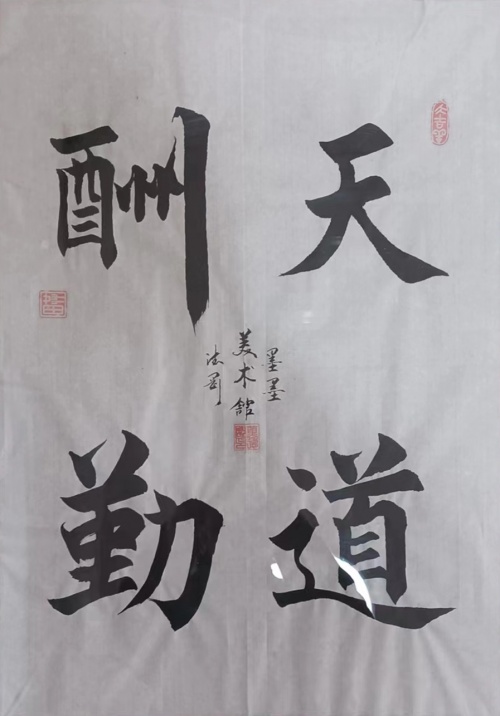 天道
酬勤
墨墨
美术馆
法罰